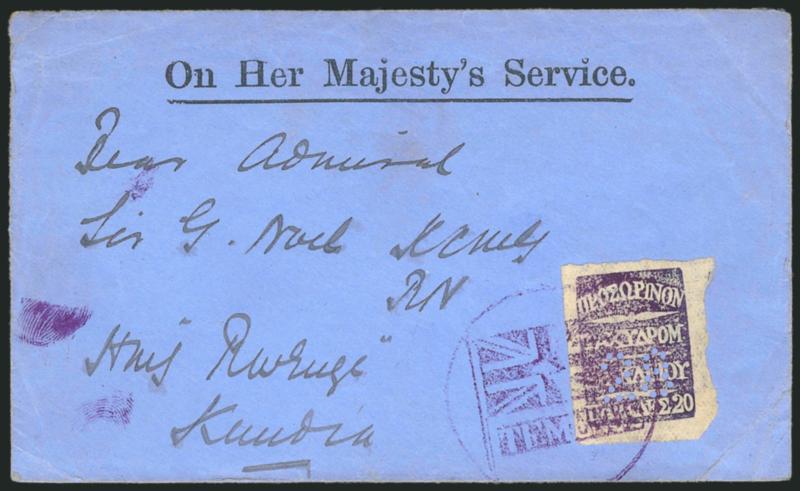 On Her Majesty's Service.
Rear Admiral
Sir G. Noel KCMG
RN
HMS "Revenge"
Kandia
ΠΡΟΣΩΡΙΝΟΝ
ΤΑΧΥΔΡΟΜ
20